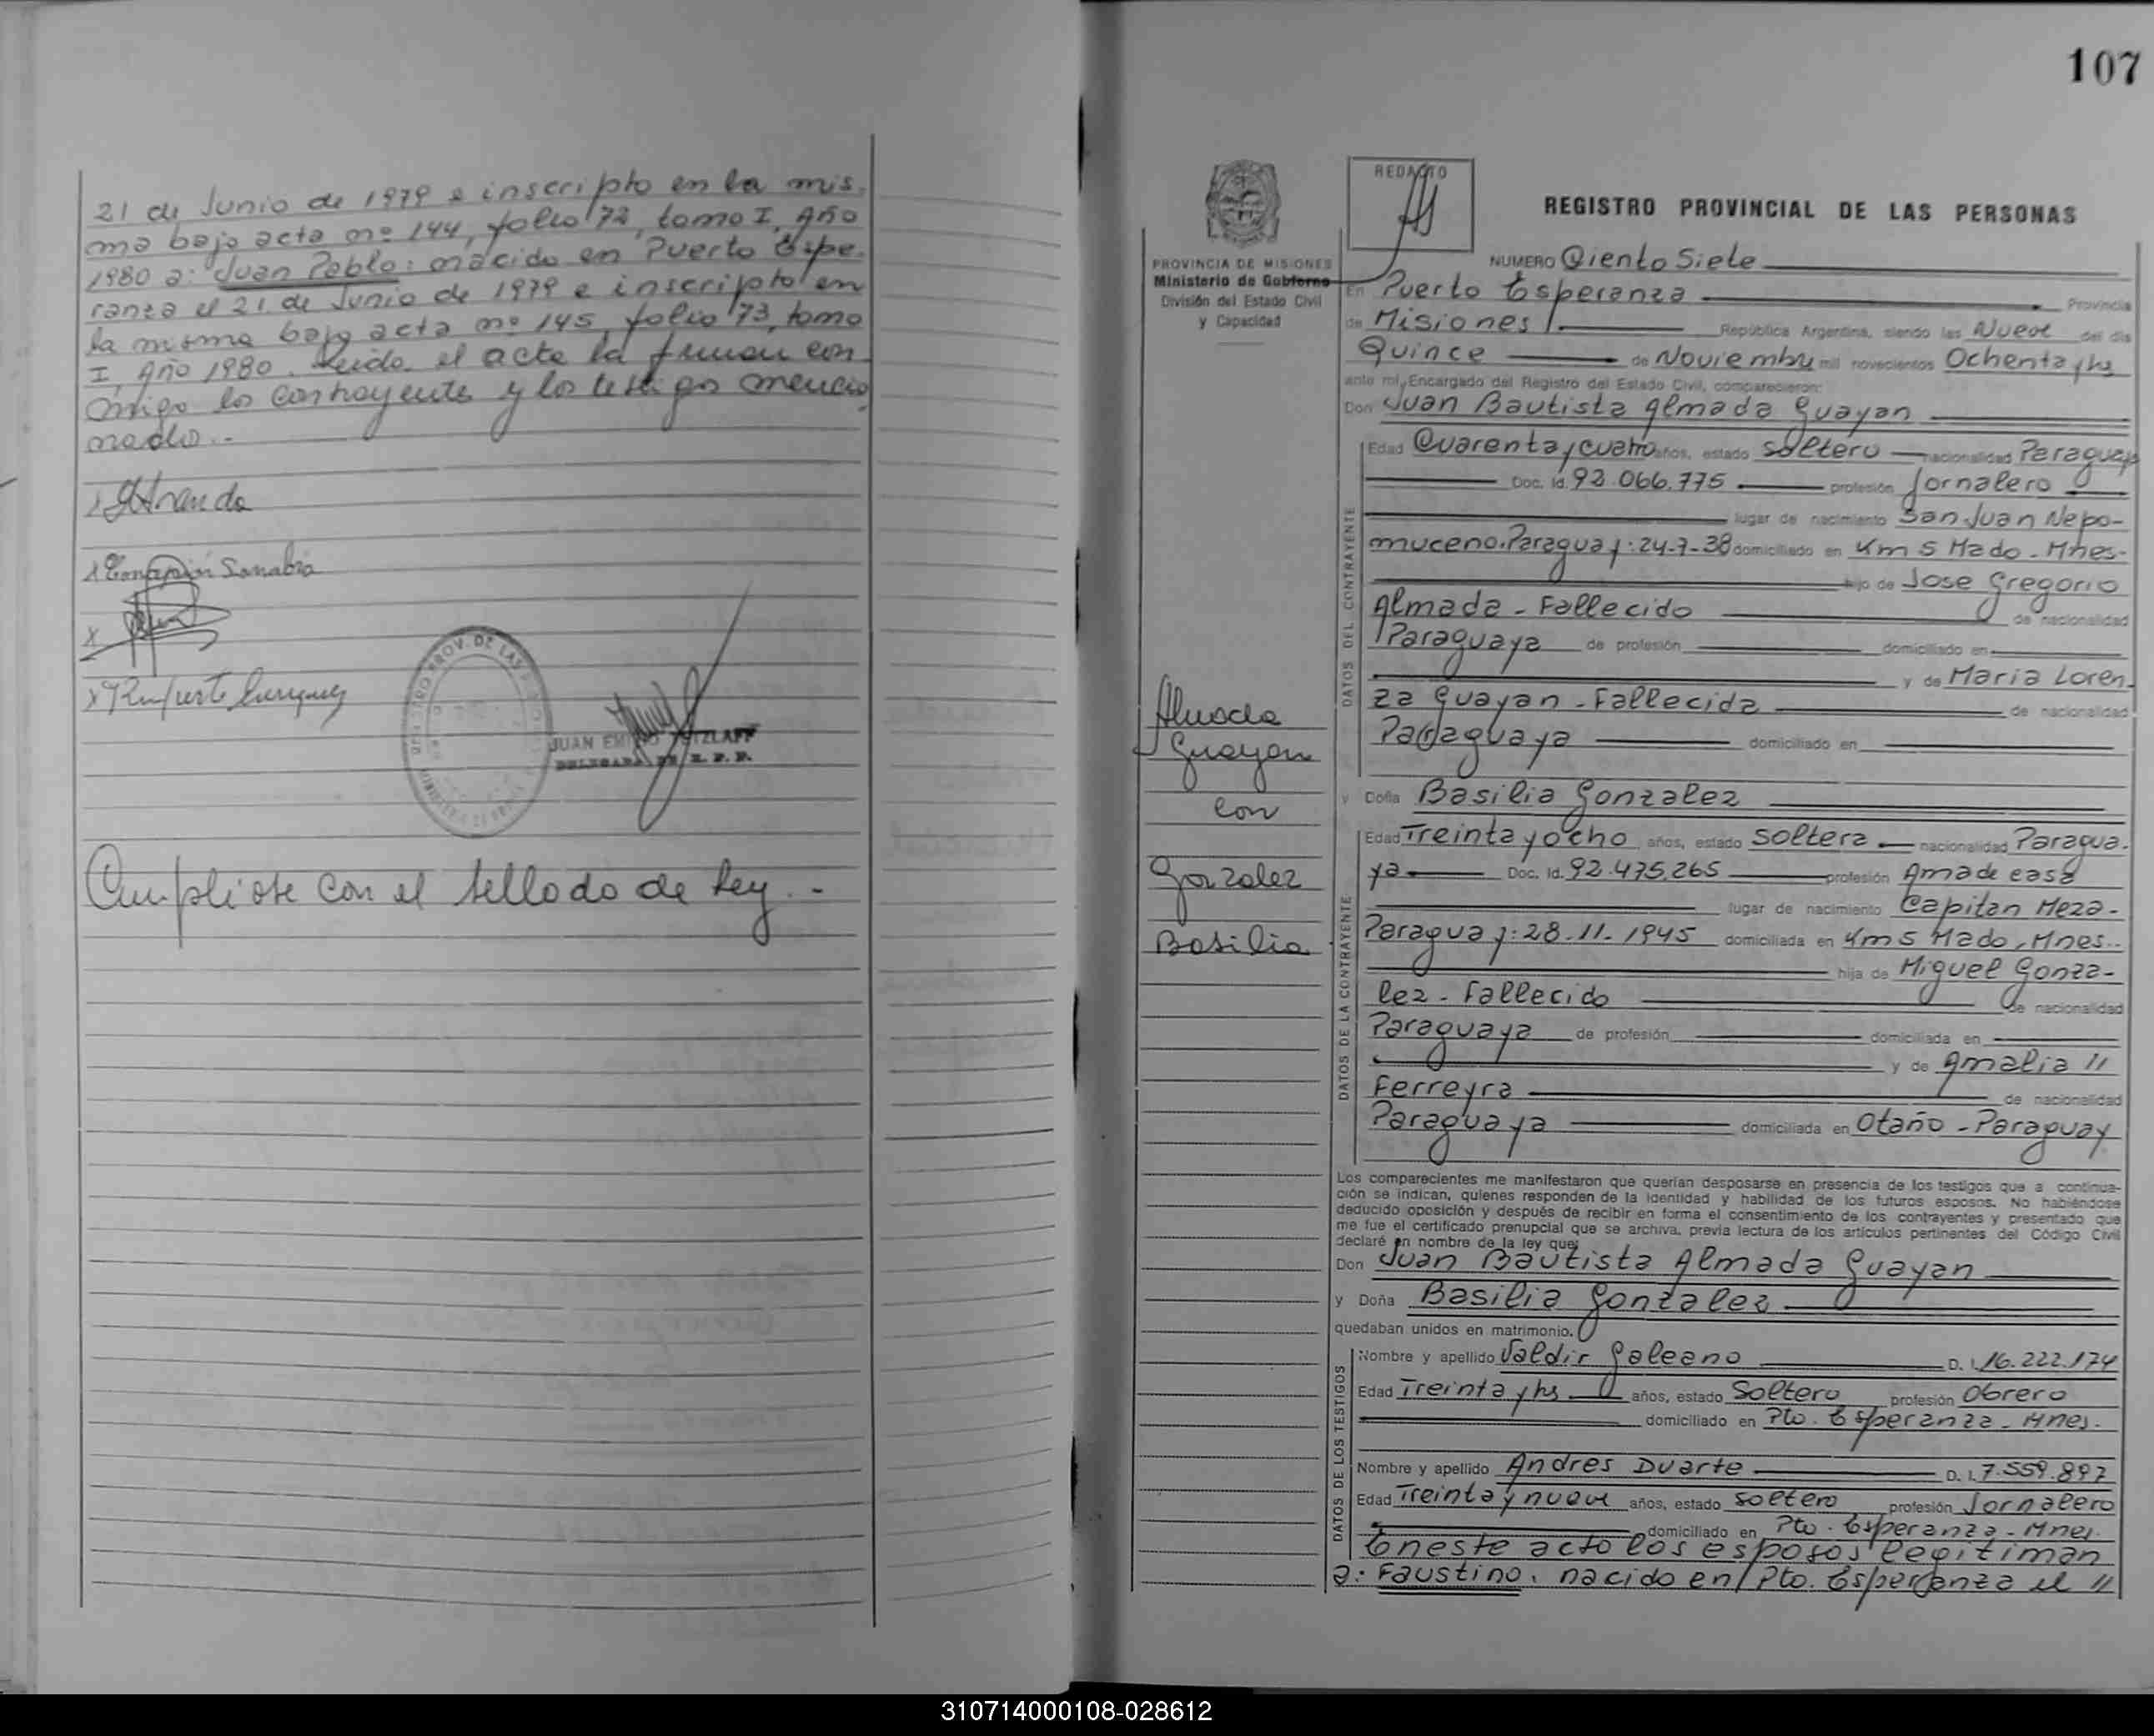 21 de Junio de 1979 e inscripto en la mis
ma bajo acta nº 144, folio 72, tomo I, Año
1980 a: Juan Pablo: nacido en Puerto Espe-
ranza el 21 de Junio de 1979 e inscripto en
la misma bajo acta nº 145, folio 73, tomo
I, Año 1980. Leida el acta la firman con
migo los contrayentes y los testigos mencio
nados.-
Sanabria
JUAN
Cumpliose con el sellado de Ley.-
107
REDACTO
REGISTRO PROVINCIAL DE LAS PERSONAS
PROVINCIA DE MISIONES
Ministerio de Gobierno
División del Estado Civil
y Capacidad
NUMERO Ciento Siete
En Puerto Esperanza Provincia
de Misiones República Argentina, siendo las Nueve del día
Quince de Noviembre mil novecientos Ochenta y tres
ante mí, Encargado del Registro del Estado Civil, comparecieron:
Don Juan Bautista Almada Guayan
DATOS DEL CONTRAYENTE
Edad Cuarenta y cuatro años, estado soltero nacionalidad Paraguaya
Doc. Id. 92.066.775 profesión Jornalero
lugar de nacimiento San Juan Nepo-
muceno. Paraguay: 24-7-38 domiciliado en Km 5 Mado - Mnes-
hijo de Jose Gregorio
Almada - Fallecido de nacionalidad
Paraguaya de profesión domiciliado en
y de Maria Loren
za Guayan - Fallecida de nacionalidad
Paraguaya domiciliado en
Almada
Guayan
con
Gonzalez
Basilia
y Doña Basilia Gonzalez
DATOS DE LA CONTRAYENTE
Edad Treinta y ocho años, estado soltera nacionalidad Paragua-
ya Doc. Id. 92.475.265 profesión Ama de casa
lugar de nacimiento Capitan Meza-
Paraguay: 28-11-1945 domiciliada en Km 5 Mado, Mnes.-
hija de Miguel Gonza-
lez - Fallecido de nacionalidad
Paraguaya de profesión domiciliada en
y de Amalia //
Ferreyra de nacionalidad
Paraguaya domiciliada en Otaño - Paraguay
Los comparecientes me manifestaron que querían desposarse en presencia de los testigos que a continua-
ción se indican, quienes responden de la identidad y habilidad de los futuros esposos. No habiéndose
deducido oposición y después de recibir en forma el consentimiento de los contrayentes y presentado que
me fue el certificado prenupcial que se archiva, previa lectura de los artículos pertinentes del Código Civil
declaré en nombre de la ley que:
Don Juan Bautista Almada Guayan
y Doña Basilia Gonzalez
quedaban unidos en matrimonio.
DATOS DE LOS TESTIGOS
Nombre y apellido Valdir Galeano D. I. 16.222.174
Edad Treinta y tres años, estado Soltero profesión Obrero
domiciliado en Pto. Esperanza - Mnes.
Nombre y apellido Andres Duarte D. I. 7.559.897
Edad Treinta y nueve años, estado soltero profesión Jornalero
domiciliado en Pto. Esperanza - Mnes.
En este acto los esposos legitiman
a: Faustino, nacido en Pto. Esperanza el //
310714000108-028612